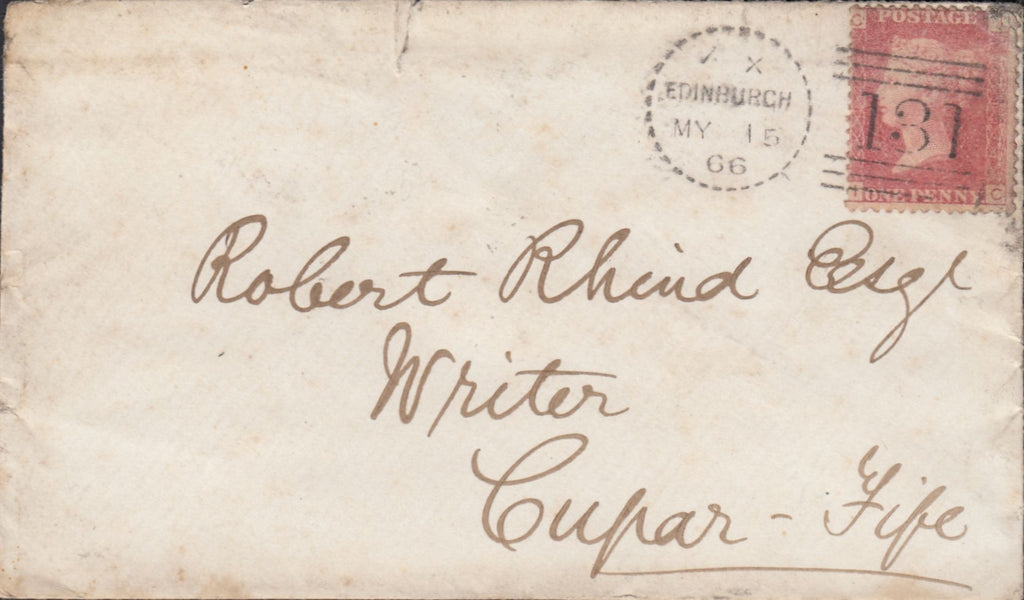 POSTAGE
X
EDINBURGH
MY 15
66
131
ONE PENNY C
Robert Rhind Esqr
Writer
Cupar - Fife